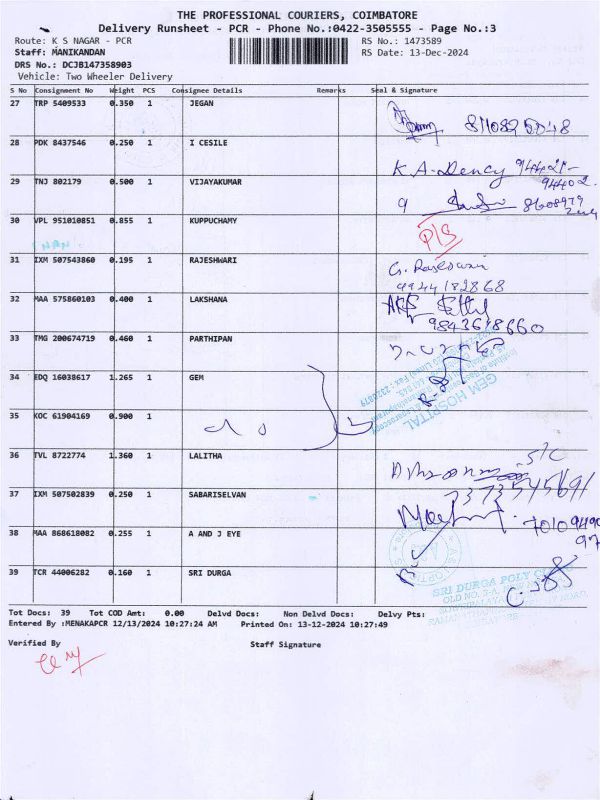 THE PROFESSIONAL COURIERS, COIMBATORE
Delivery Runsheet - PCR - Phone No.:0422-3505555 - Page No.:3
Route: K S NAGAR - PCR RS No.: 1473589
Staff: MANIKANDAN RS Date: 13-Dec-2024
DRS No.: DCJB147358903
Vehicle: Two Wheeler Delivery
S No Consignment No Weight PCS Consignee Details Remarks Seal & Signature
27 TRP 5409533 0.350 1 JEGAN
28 PDK 8437546 0.250 1 I CESILE
K.A. Dency
29 TNJ 802179 0.500 1 VIJAYAKUMAR
30 VPL 951010851 0.855 1 KUPPUCHAMY
P/S
31 IXM 507543860 0.195 1 RAJESHWARI
9944182868
32 MAA 575860103 0.400 1 LAKSHANA
9843618660
33 TMG 200674719 0.460 1 PARTHIPAN
34 EDQ 16038617 1.265 1 GEM
GEM HOSPITAL
35 KOC 61904169 0.900 1
36 TVL 8722774 1.360 1 LALITHA
37 IXM 507502839 0.250 1 SABARISELVAN
38 MAA 868618082 0.255 1 A AND J EYE
39 TCR 44006282 0.160 1 SRI DURGA
SRI DURGA POLY
Tot Docs: 39 Tot COD Amt: 0.00 Delvd Docs: Non Delvd Docs: Delvy Pts:
Entered By :MENAKAPCR 12/13/2024 10:27:24 AM Printed On: 13-12-2024 10:27:49
Verified By Staff Signature